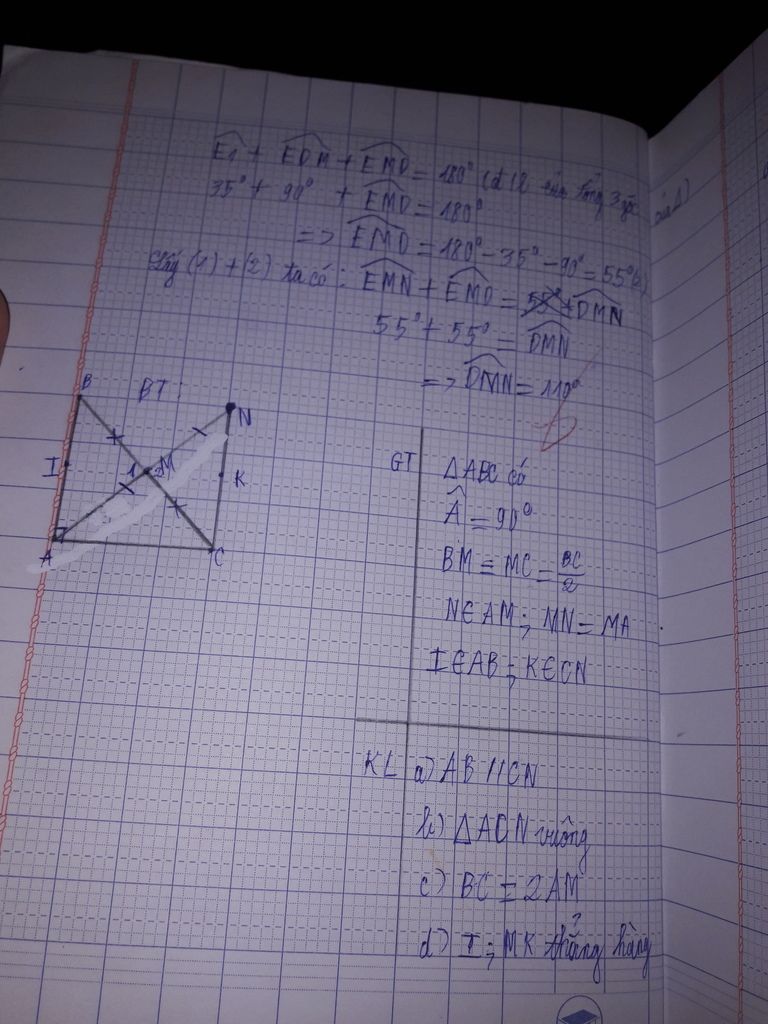 Ê1 + EDM + EMD = 180° (đ lí của tổng 3 góc của Δ)
35° + 90° + EMD = 180°
=> EMD = 180° - 35° - 90° = 55° (2)
Lấy (1) + (2) ta có: EMN + EMD = 55° + DMN
55° + 55° = DMN
=> DMN = 110°
BT:
B
N
I
1 2
M
K
A
C
GT
ΔABC có
Â = 90°
BM = MC = BC/2
N∈AM; MN = MA
I∈AB; K∈CN
KL a) AB//CN
b) ΔACN vuông
c) BC = 2AM
d) I; MK thẳng hàng